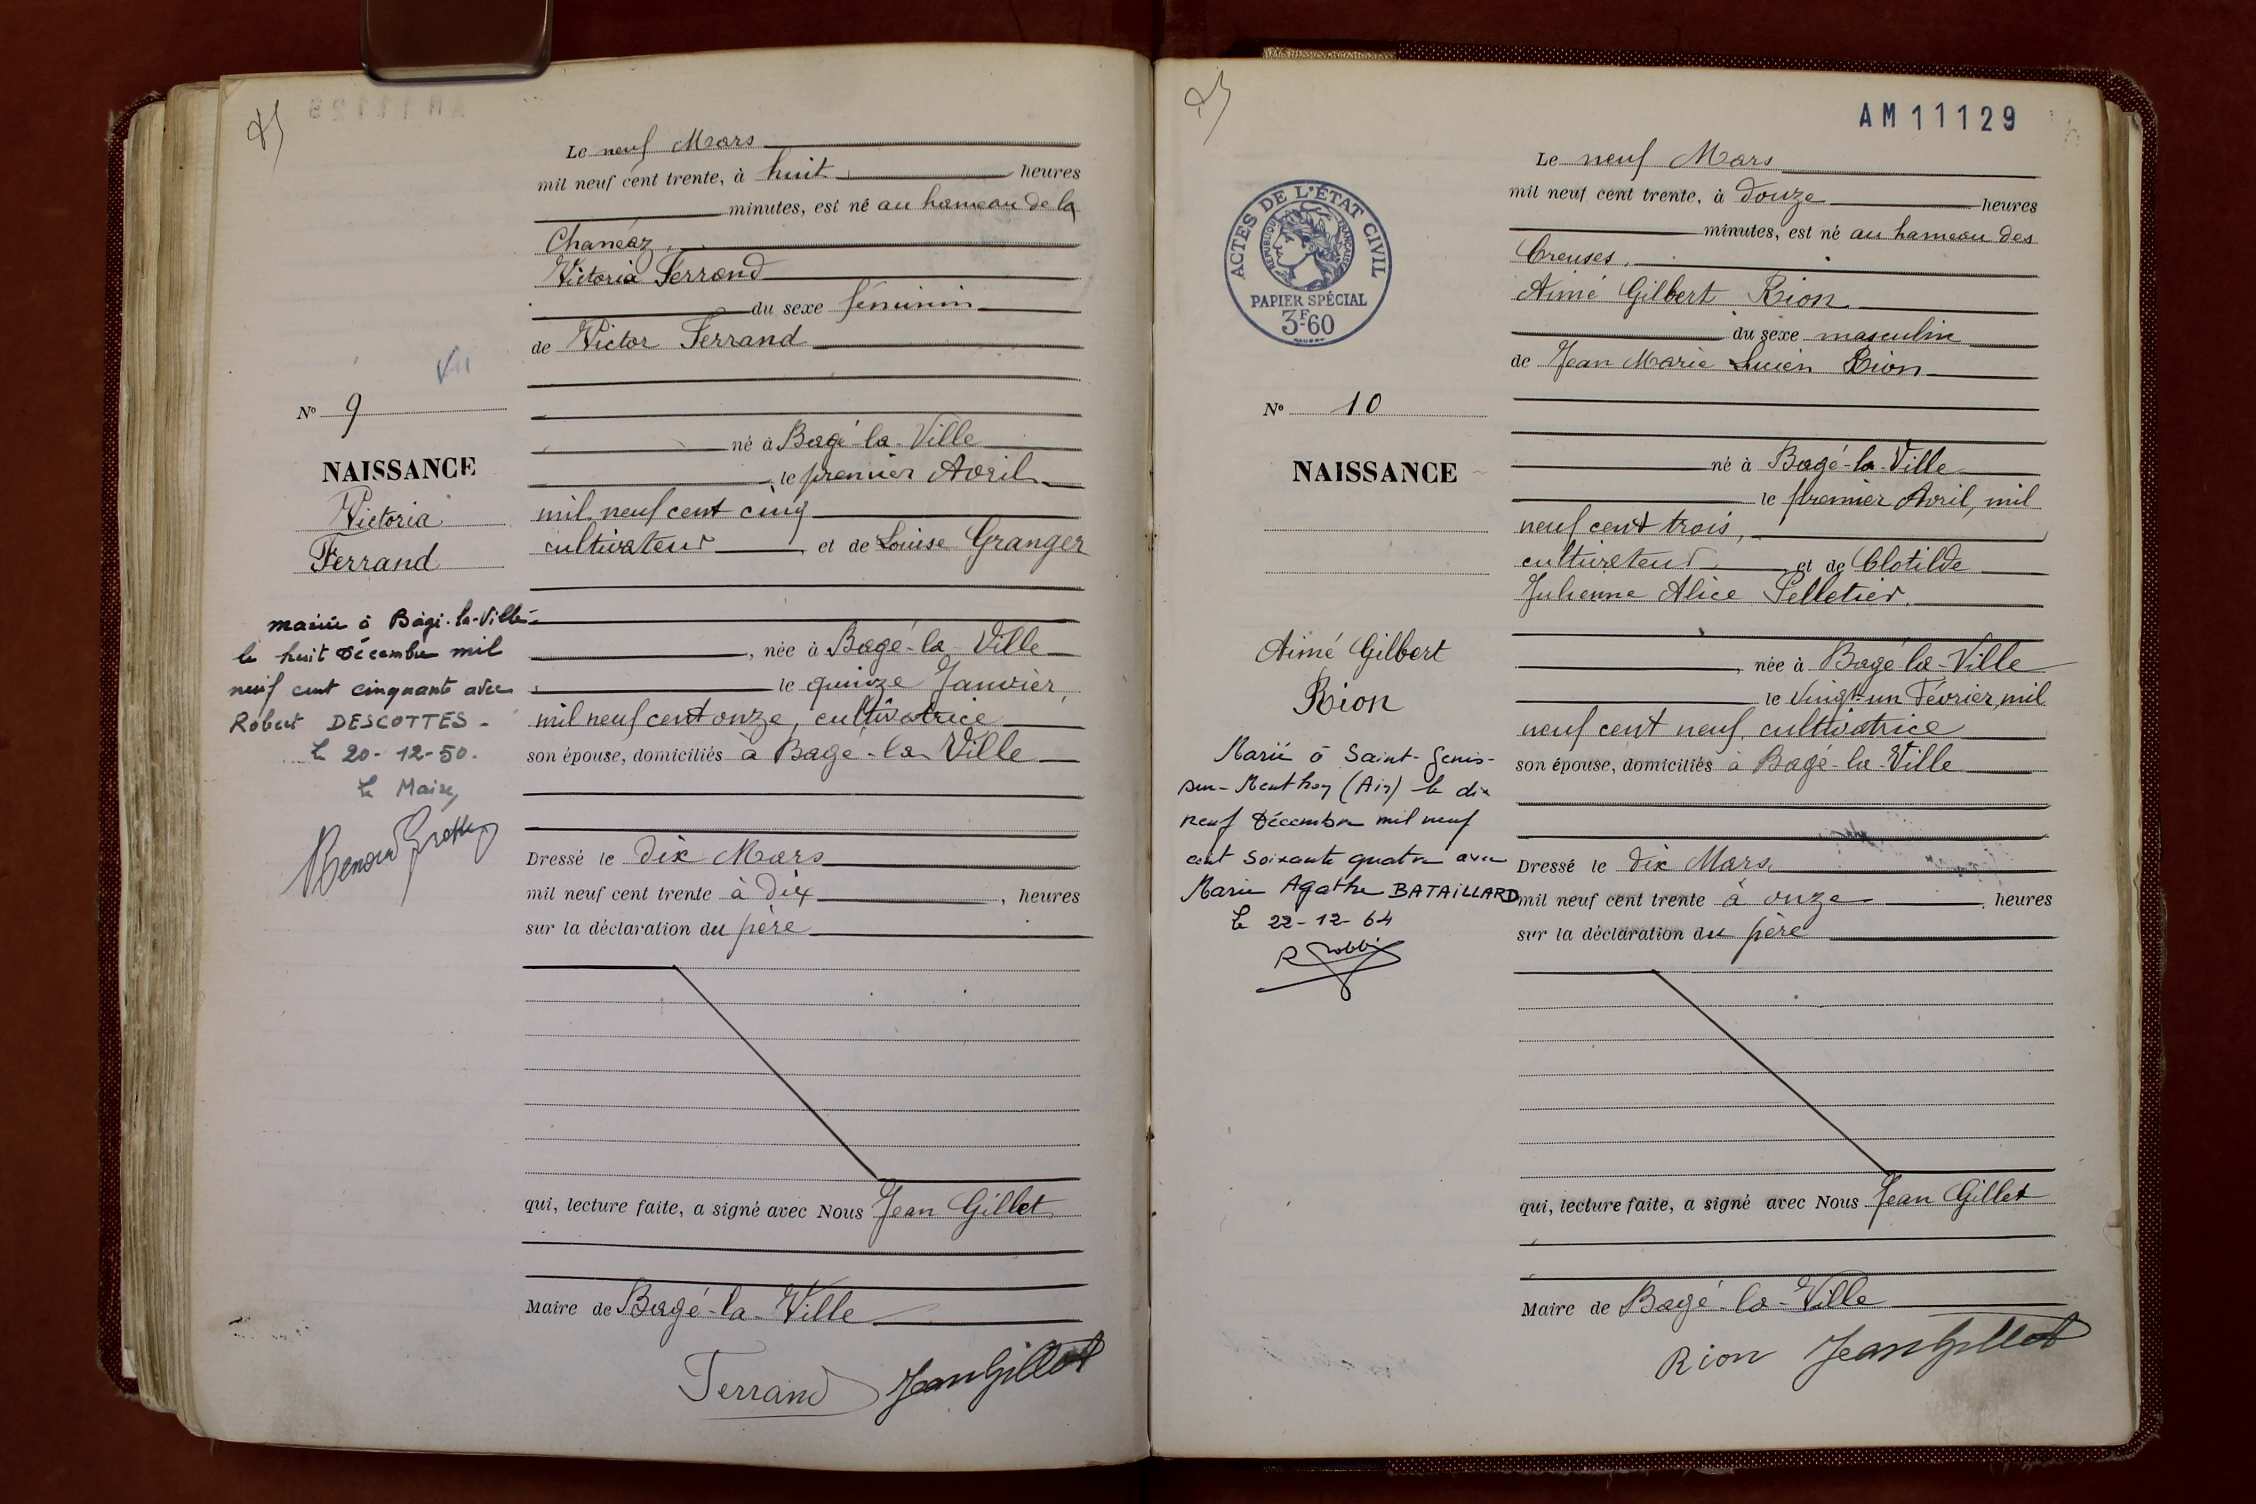 Le neuf Mars
mil neuf cent trente, à huit heures
minutes, est né au hameau de la
Chanéaz,
Victoria Ferrand
du sexe féminin
de Victor Ferrand
né à Bagé-la-Ville
le premier Avril
mil neuf cent cinq
cultivateur et de Louise Granger
née à Bagé-la-Ville
le quinze Janvier,
mil neuf cent onze, cultivatrice
son épouse, domiciliés à Bagé-la-Ville
Dressé le dix Mars
mil neuf cent trente à dix, heures
sur la déclaration du père
qui, lecture faite, a signé avec Nous Jean Gillet
Maire de Bagé-la-Ville
Ferrand Jean Gillet
Vu
No 9
NAISSANCE
Victoria
Ferrand
Mariée à Bâgé-la-Ville
le huit Décembre mil
neuf cent cinquante avec
Robert DESCOTTES -
Le 20-12-50.
Le Maire,
AM 11129
ACTES DE L'ÉTAT CIVIL
RÉPUBLIQUE FRANÇAISE
PAPIER SPÉCIAL
3F60
No 10
NAISSANCE
Aimé Gilbert
Rion
Marié à Saint-Genis-
sur-Menthon (Ain) le dix
neuf Décembre mil neuf
cent soixante quatre avec
Marie Agathe BATAILLARD
Le 22-12-64
Le neuf Mars
mil neuf cent trente, à douze heures
minutes, est né au hameau des
Creuses,
Aimé Gilbert Rion
du sexe masculin
de Jean Marie Lucien Rion
né à Bagé-la-Ville
le premier Avril, mil
neuf cent trois,
cultivateur et de Clotilde
Julienne Alice Pelletier,
née à Bagé-la-Ville
le vingt-un Février, mil
neuf cent neuf, cultivatrice
son épouse, domiciliés à Bagé-la-Ville
Dressé le dix Mars,
mil neuf cent trente à onze, heures
sur la déclaration du père
qui, lecture faite, a signé avec Nous Jean Gillet
Maire de Bagé-la-Ville
Rion Jean Gillet